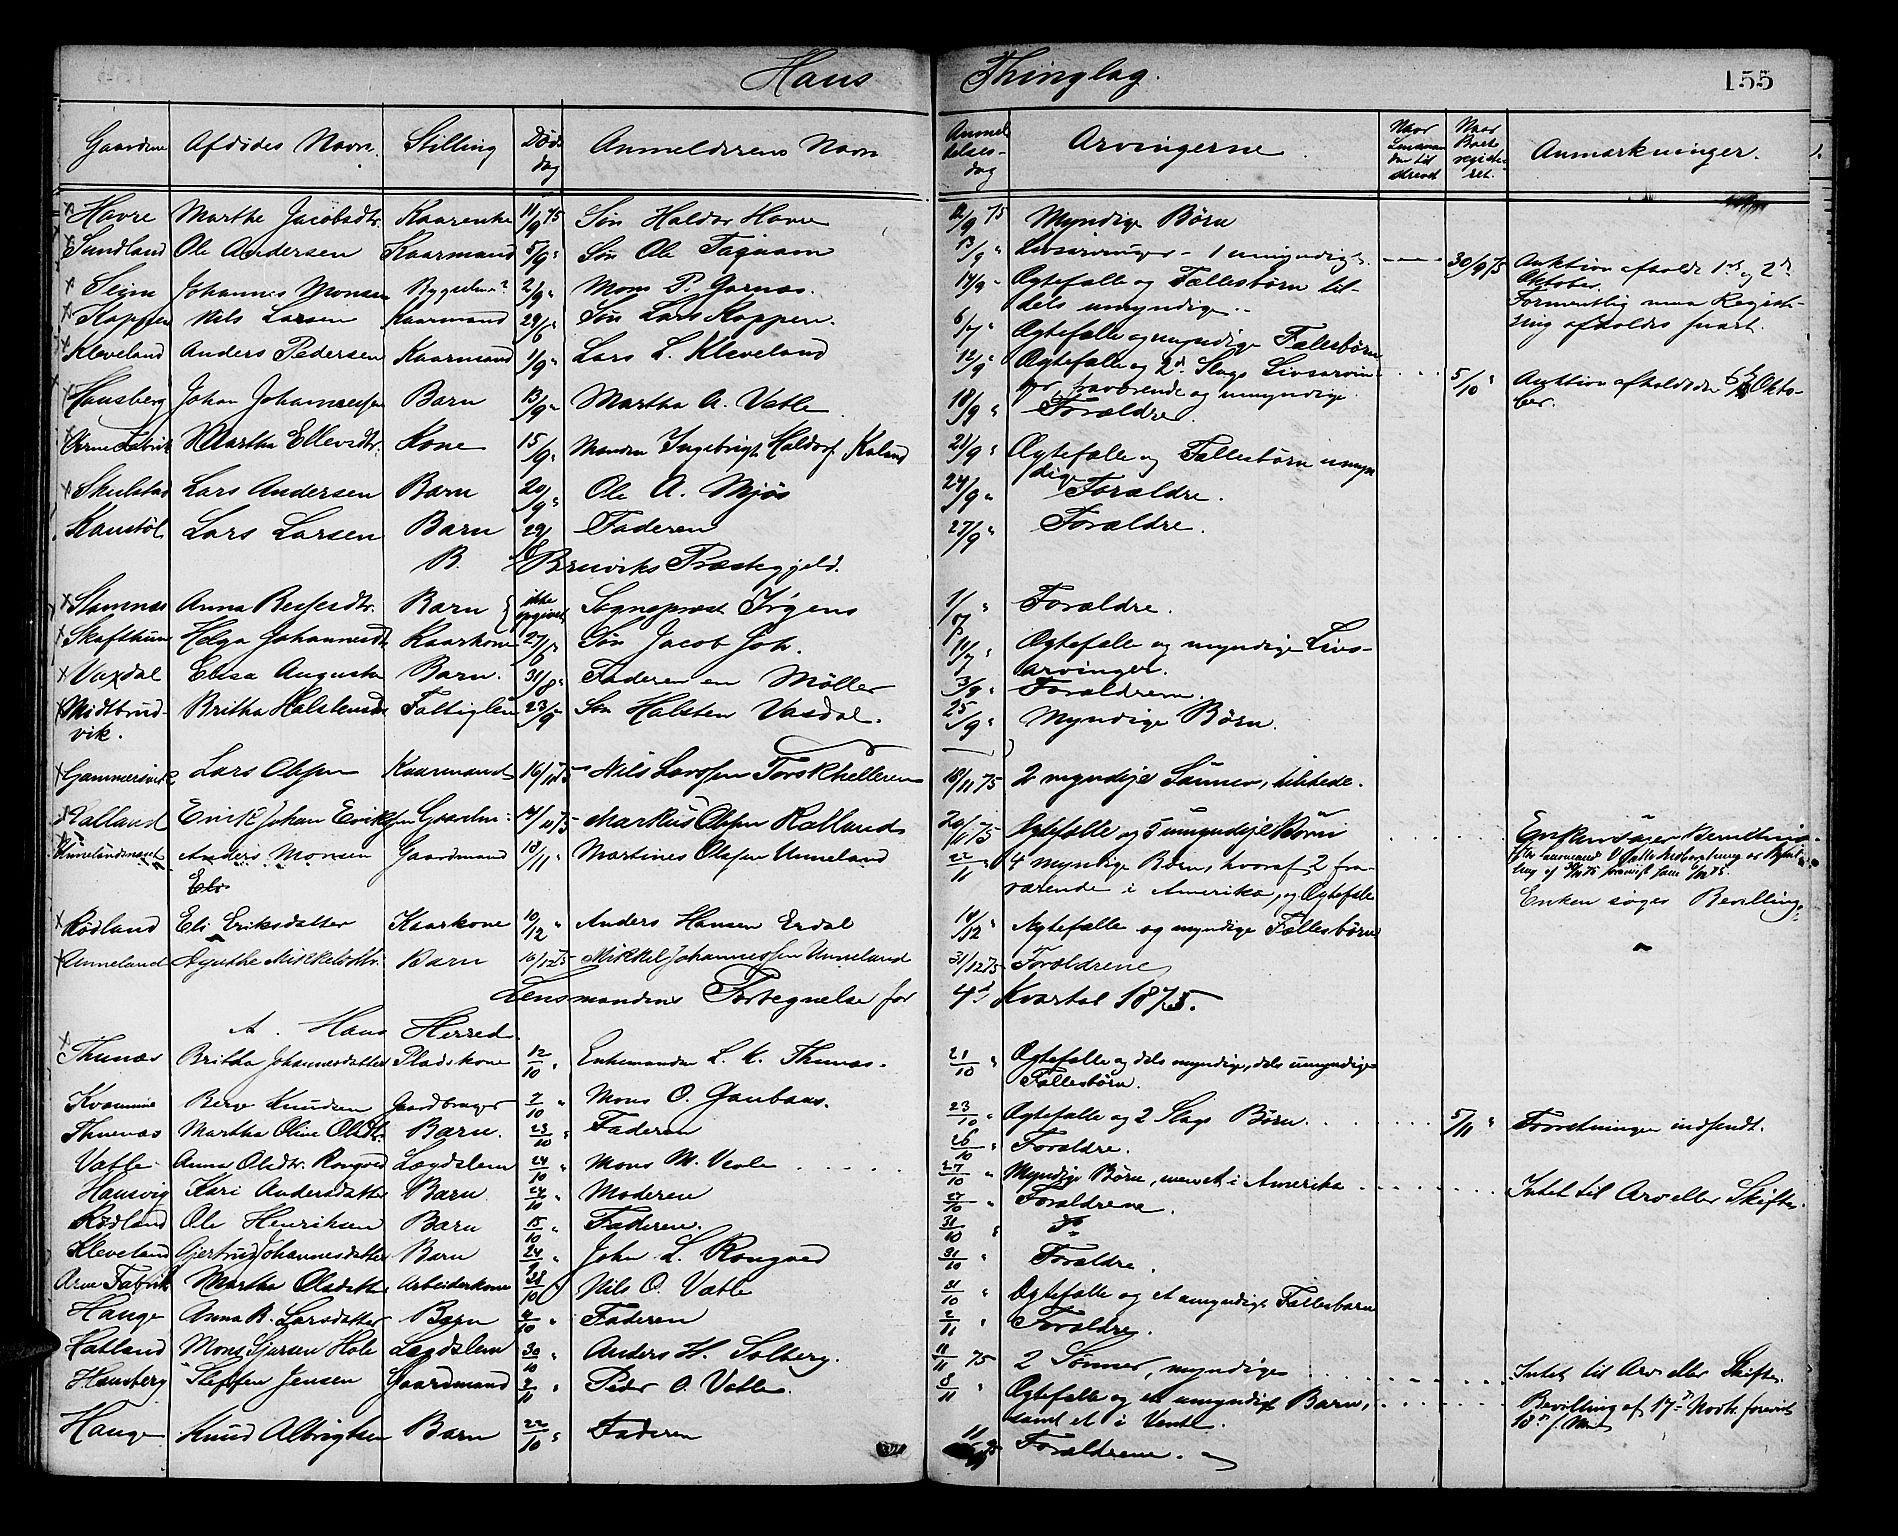 Haus Thinglag. 155
Gaardene Afdödes Navn. Stilling Döds dag Anmelderens Navn Anmel delses- dag Arvingerne Naar Naar Boets registe- ret. Anmærkninger.
x Havre Marthe Jacobsdtr. Kaarenke 11/9 75 Søn Haldor Havre 12/9 75 Myndige Börn
x Sundland Ole Andersen Kaarmand 5/9 " Søn Ole 13/9 " Livsarvinger - 1 umyndig. 30/9 75 Auktion afholdt 1ste og 2den Oktober.
x Seim Johannes Monsen 2/9 " Mons P. Garnæs. 14/9 " Ægtefælle og Fællesbörn til-
dels umyndige. Formentlig maa Registr-
ing afholdes snart.
x Koppen Nils Larsen Kaarmand 29/6 " Søn Lars Koppen. 6/7 " Ægtefælle og myndige Fællesbörn
x Kleveland Anders Pedersen Kaarmand 1/9 " Lars L. Kleveland 12/9 " Ægtefælle og 2d. Slags Livsarvin-
ger, fraværende og umyndige. 5/10 " Auktion afholdt den Okto-
ber.
x Hausberg Johan Johannessen Barn 13/9 " Martha A. Vatle 18/9 " Forældre
x Arne Fabrik Martha Ellevsdtr. Kone 15/9 " Manden Ingebrigt Haldorsen Kaland 21/9 " Ægtefælle og Fællesbörn umyn
dige
x Skulstad Lars Andersen Barn 20/9 " Ole A. Mjös 24/9 " Forældre.
Kaustöl Lars Larsen Barn 29/ Faderen 27/9 " Forældre.
B. Bruviks Præstegjeld.
x Stamnæs Anna Barn ikke opgivet Sogneprest Irgens 1/7 " Forældre.
x Skafthun Helga Johannesdtr. Kaarkone 27/6 Søn Jacob Joh. 11/7 " Ægtefælle og myndige Livs-
arvinger.
x Vaxdal Elisa Augusta Barn. 31/8 " Faderen en Möller 3/9 " Forældrene.
x Midtbrud-
vik. Britha Halstensdtr. Fattiglem 23/9 " Søn Halsten Vasdal. 25/9 " Myndige Börn.
x Gammersvik Lars Olsen Kaarmand 16/11 75 Nils Larssen Torskhelleren 18/11 75 2 myndige Sønner, tilstede.
x Halland Erik Johan Eriksen Gaardm. 14/11 75 Markus Olsen Rolland 20/11 75 Ægtefælle og 5 umyndige Börn Enken søger Bevilling
x Anders Monsen Gaardmand 18/11 " Martines Olsen Unneland 22/11 " 4 myndige Börn, hvoraf 2 fra-
værende i Amerika, og Ægtefælle Enken søger Bevilling.
x Rödland Eli Eriksdatter Kaarkone 10/12 " Anders Hansen Erdal 14/12 " Ægtefælle og myndige Fællesbörn
x Unneland Agathe Mikkelsdtr. Barn 16/12 75 Mikkel Johannessen Unneland 31/12 75 Forældrene
Lensmandens Fortegnelse for 4de Kvartal 1875.
A. Haus Herred
x Thunæs Britha Johannesdatter Pladskone 12/10 " Enkemanden L. K. Thunæs. 21/10 " Ægtefælle og dels myndige, dels umyndige
Fællesbörn.
Kvamme Berge Knudsen Gaardbruger 7/10 " Mons O. Gaubaas. 23/10 " Ægtefælle og 2 Slags Börn. 5/11 " Forretningen indsendt.
Thunæs Martha Oline Olsdtr. Barn. 23/10 " Faderen 26/10 " Forældre.
Vatle Anna Olsdtr. Rongved Lægdslem 24/10 " Mons M. Veole 27/10 " Myndige Börn, i Amerika Intet til Arv eller Skifte.
Hausvig Kari Andersdatter Barn 24/10 " Moderen 27/10 " Forældrene.
Rödland Ole Henriksen Barn 15/10 " Faderen. 31/10 " Do
Kleveland Gjertrud Johannesdatter Barn 24/ John L. Rongved 31/10 " Forældre.
Arne Fabrik Martha Olsdatter Arbeiderkone 28/10 Nils O. Vatle 31/10 " Ægtefælle og et umyndigt Fællesbarn
Hauge Anna B. Larsdatter Barn 4/10 " Faderen 2/11 " Forældre.
Hatland Mons Sjursen Hole Lægdslem 30/10 " Anders H. Solberg. 11/11 75 2 Sønner, myndige Intet til Arv eller Skifte.
Hausberg Steffen Jensen Gaardmand 2/11 " Peder O. Vatle. 8/11 " Ægtefælle og et umyndigt Barn,
samt et i Vente. Bevilling af 17de Novbr. forevist
18de s. Md.
Hauge Knud Albrigtsen Barn 22/10 " Faderen 11/ Forældrene.